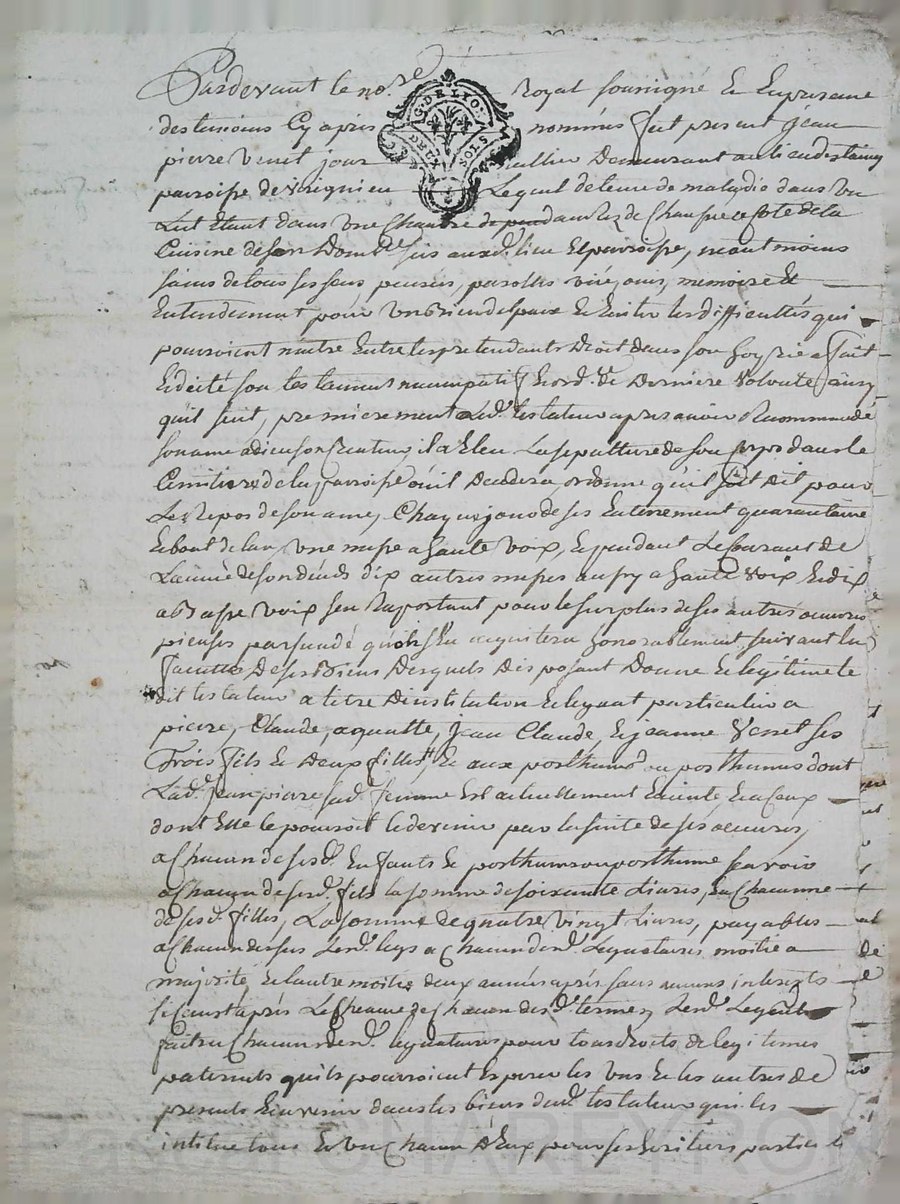 Pardevant le no.re Royal soussigné Et En presance
des temoins Cy apres nommés fut present jean
pierre Venet jour demeurant au lieu
parroisse de Lequel detenu de maladie dans Un
Lict Etant dans Une Chambre de la
Cuisine de son Dom.le sis auxd. lieu Et parroisse, neant moins
sains de tous ses sens pensées, parolles vüe, ouie, memoire Et
Entendement pour Un Bien de paix Et Eviter les difficultés qui
pourroient naitre Entre les pretendants Droit dans son hoyrie a fait
Et dicté son testament nuncupatif Et ord. de Derniere Volonté ainsy
quil suit, premierement Led. testateur apres avoir Recommandé
son ame a dieu son Createur il a Eleu La sepulture de son Corps dans le
Cimitiere de la parroisse ou il decedera, ordonne qu'il soit Dit pour
Le Repos de son ame, Chaque jour de ses Enterrement quarantaine
Et bout de lan, Une messe a haute voix, Et pendant Le Courant de
Lannée de son deceds dix autres messes aussy a haute Voix Et dix
a Basse voix sen Raportant pour le surplus de ses autres oeuvres
pieuses persuadé quon sen acquitera honorablement suivant les
facultés De ses Biens Desquels Disposant Donne Et legue Le
dit testateur a titre Dinstitution Et legat particulier a
pierre, Claude, jean Claude, Et jeanne Venet ses
Trois fils Et Deux filles, Et aux posthume ou posthumes dont
Lad. sad. femme Est actuellement Enceinte, Et a Ceux
dont Elle le pourroit le devenir par la suite de ses oeuvres,
a Chacun de sesd. Enfants Et posthume ou posthume scavoir
a Chacun de sesd. fils la somme de soixante Livres, Et a Chacune
de sesd. filles, La somme de quatre Vingt Livres, payables
a Chacun de ses Lesd. legs a Chacun desd. Legataires moitié a
majorité, Et lautre moitié deux années apres sans aucuns interests
si ce nest apres Lecheance de Chacun desd. termes, Lesd. Legats
faits a Chacun desd. legataires pour tous droits de legitimes
paternels quils pourroient Esperer les Uns Et les autres de
presents Et avenir dans les biens dud. testateur qui les
institue tous Et Un Chacun D'Eux pour ses heritiers particuli